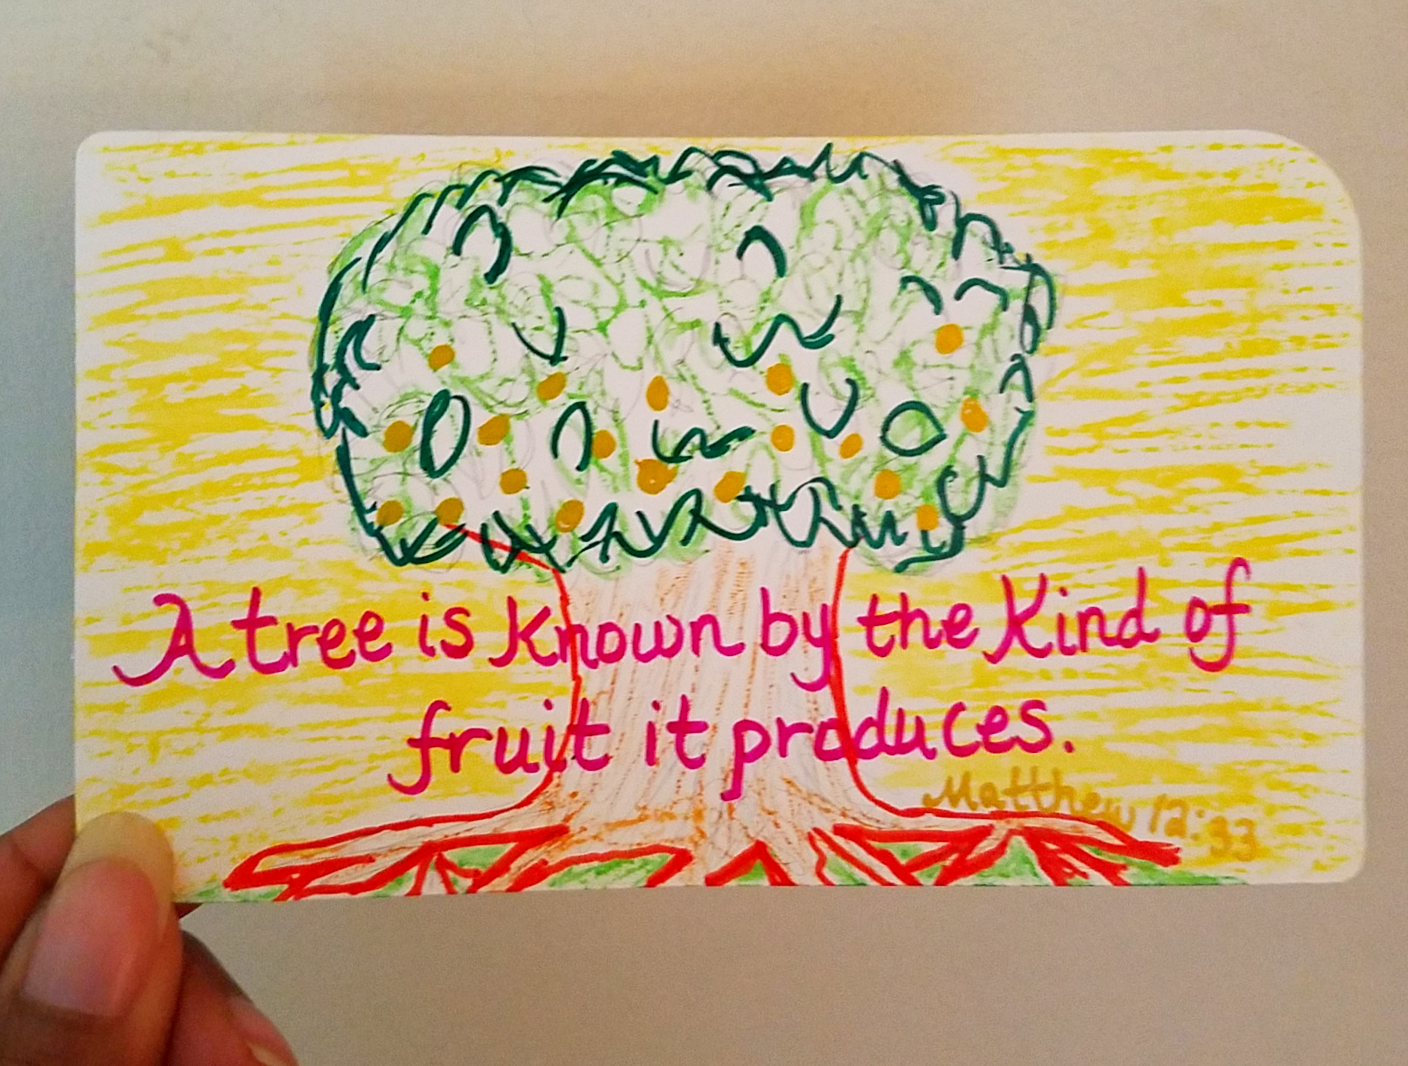 A tree is Known by the Kind of
fruit it produces.
Matthew 12:33